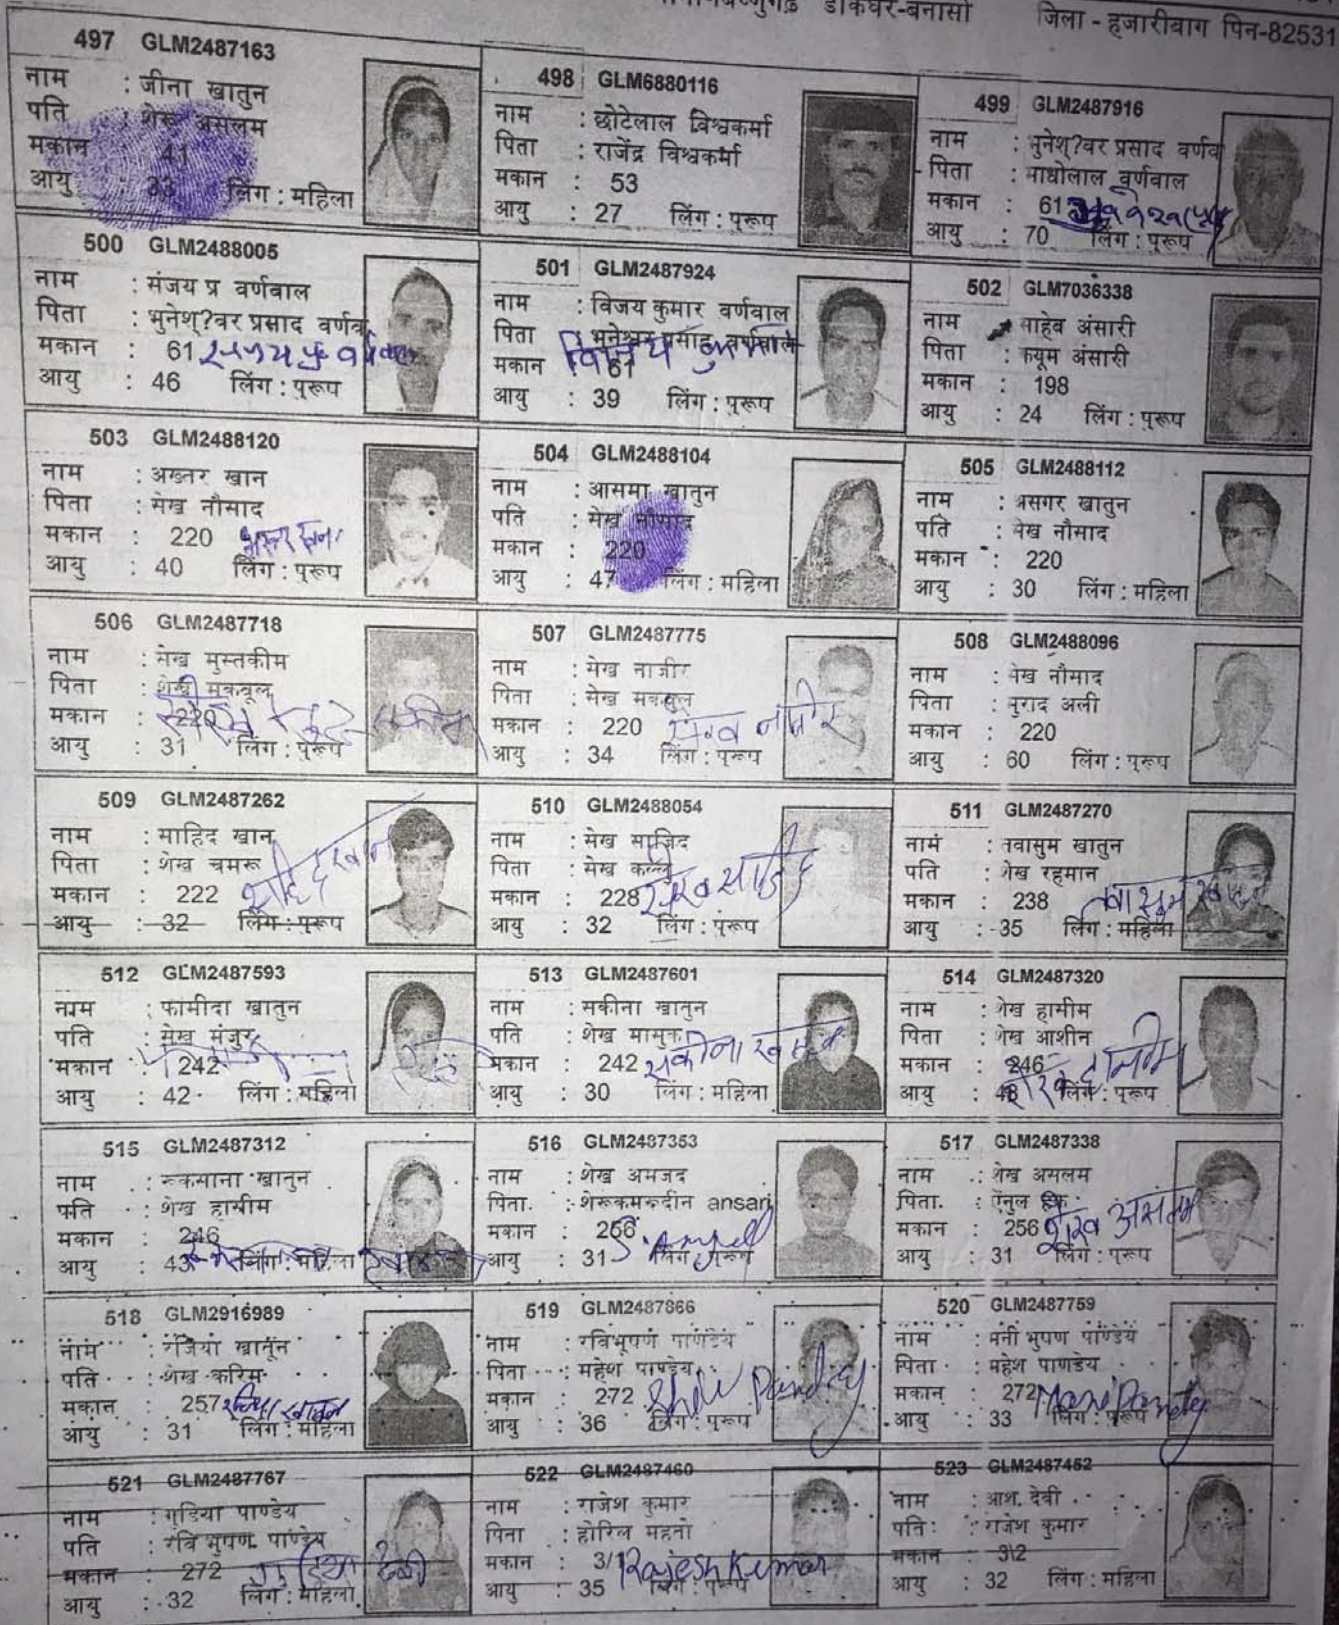 डाकघर-बनासो जिला - हजारीवाग पिन-82531
497 GLM2487163
नाम : जीना खातुन
पति : शेरू असलम
मकान : 41
आयु : 33 लिंग : महिला
498 GLM6880116
नाम : छोटेलाल विश्वकर्मा
पिता : राजेंद्र विश्वकर्मा
मकान : 53
आयु : 27 लिंग : पुरूप
499 GLM2487916
नाम : भुनेश्?वर प्रसाद वर्णव
पिता : माधोलाल वर्णवाल
मकान : 61
आयु : 70 लिंग : पुरूप
500 GLM2488005
नाम : संजय प्र वर्णवाल
पिता : भुनेश्?वर प्रसाद वर्णव
मकान : 61 संजय प्र वर्णवाल
आयु : 46 लिंग : पुरूप
501 GLM2487924
नाम : विजय कुमार वर्णवाल
पिता : भुनेश्वर प्रसाद वर्णवाल
मकान : 61 विजय कुमार
आयु : 39 लिंग : पुरूप
502 GLM7036338
नाम : साहेब अंसारी
पिता : कयूम अंसारी
मकान : 198
आयु : 24 लिंग : पुरूप
503 GLM2488120
नाम : अख्तर खान
पिता : सेख नौसाद
मकान : 220
आयु : 40 लिंग : पुरूप
504 GLM2488104
नाम : आसमा खातुन
पति : सेख नौसाद
मकान : 220
आयु : 47 लिंग : महिला
505 GLM2488112
नाम : असगर खातुन
पति : सेख नौसाद
मकान : 220
आयु : 30 लिंग : महिला
506 GLM2487718
नाम : सेख मुस्तकीम
पिता : शेख मुकबूल
मकान : 220
आयु : 31 लिंग : पुरूप
507 GLM2487775
नाम : सेख नाजीर
पिता : सेख मकबुल
मकान : 220 सेख नाजीर
आयु : 34 लिंग : पुरूप
508 GLM2488096
नाम : सेख नौसाद
पिता : मुराद अली
मकान : 220
आयु : 60 लिंग : पुरूप
509 GLM2487262
नाम : साहिद खान
पिता : शेख चमरू
मकान : 222
आयु : 32 लिंग : पुरूप
510 GLM2488054
नाम : सेख साजिद
पिता : सेख कल्लू
मकान : 228 सेख साजिद
आयु : 32 लिंग : पुरूप
511 GLM2487270
नाम : तवासुम खातुन
पति : शेख रहमान
मकान : 238 तवासुम खातुन
आयु : 35 लिंग : महिला
512 GLM2487593
नाम : फामीदा खातुन
पति : सेख मंजुर
मकान : 242
आयु : 42 लिंग : महिला
513 GLM2487601
नाम : सकीना खातुन
पति : शेख मासुक
मकान : 242 सकीना खातुन
आयु : 30 लिंग : महिला
514 GLM2487320
नाम : शेख हामीम
पिता : शेख आशीन
मकान : 246
आयु : 48 लिंग : पुरूप
515 GLM2487312
नाम : रूकसाना खातुन
पति : शेख हामीम
मकान : 246
आयु : 43 लिंग : महिला
516 GLM2487353
नाम : शेख अमजद
पिता : शेरूकमरूदीन ansari
मकान : 256
आयु : 31 लिंग : पुरूप
517 GLM2487338
नाम : शेख असलम
पिता : ऐनुल हक
मकान : 256 शेख असलम
आयु : 31 लिंग : पुरूप
518 GLM2916989
नाम : रजिया खातून
पति : शेख करिम
मकान : 257 रजिया खातुन
आयु : 31 लिंग : महिला
519 GLM2487866
नाम : रविभूपण पाणडेय
पिता : महेश पाणडेय
मकान : 272 Pandey
आयु : 36 लिंग : पुरूप
520 GLM2487759
नाम : मनी भुपण पाण्डेय
पिता : महेश पाणडेय
मकान : 272 Mani Pandey
आयु : 33 लिंग : पुरूप
521 GLM2487767
नाम : गुडिया पाण्डेय
पति : रवि भुपण पाण्डेय
मकान : 272 गुडिया देवी
आयु : 32 लिंग : महिला
522 GLM2487460
नाम : राजेश कुमार
पिता : होरिल महतो
मकान : 3/1 Rajesh Kumar
आयु : 35 लिंग : पुरूप
523 GLM2487452
नाम : आश. देवी
पति : राजेश कुमार
मकान : 312
आयु : 32 लिंग : महिला